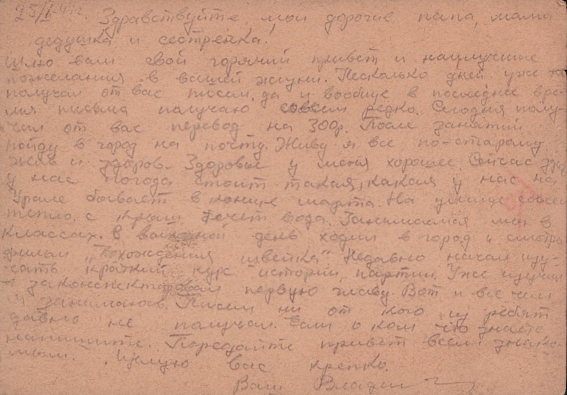 Здравствуйте, мои дорогие папа, мама
дедушка и сестренка!
Шлю вам свой горячий привет и наилучшие
пожелания в вашей жизни. Несколько дней уже не
получал от вас писем, да и вообще в последнее вре
мя письма получаю совсем редко. Сегодня полу-
чил от вас перевод на 300р. После занятий
пойду в город на почту. Живу я все по-старому
жив и здоров. Здоровье у меня хорошее. Сейчас
у нас погода стоит такая, какая у нас на
Урале бывает в конце марта. На улице совсем
тепло, с крыш течет вода. Занимаемся мы в
классах. В выходной день ходил в город и смотрел
фильм "Похождения Швейка". Недавно начал изу-
чать краткий курс истории партии. Уже изучил
и законспектировал первую главу. Вот и все чем
я занимаюсь. Писем ни от кого из ребят
давно не получал. Если о ком что знаете
напишите. Передайте привет всем знако-
мым. Целую вас крепко.
Ваш